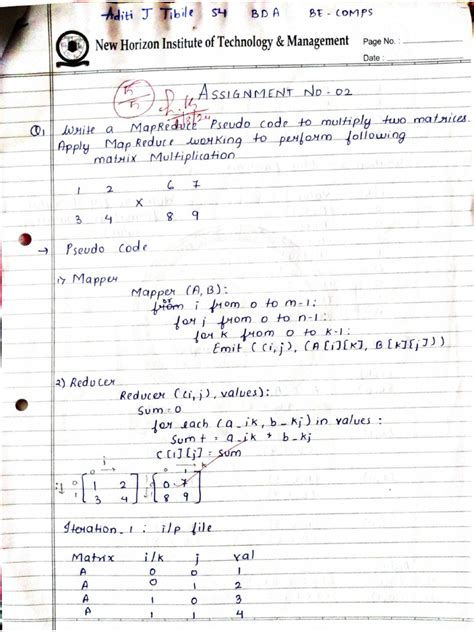 Aditi J Tibile 54 BDA BE-COMPS
New Horizon Institute of Technology & Management
Page No. :
Date :
5/5
ASSIGNMENT NO-02
Q1 Write a MapReduce Pseudo code to multiply two matrices.
Apply Map Reduce working to perform following
matrix Multiplication
1 2 6 7
x
3 4 8 9
→ Pseudo Code
1) Mapper
Mapper (A, B):
for i from 0 to m-1:
for j from 0 to n-1:
for k from 0 to k-1:
Emit ((i,j), (A[i][k], B[k][j]))
2) Reducer
Reducer ((i,j), values):
Sum = 0
for each (a_ik, b_kj) in values :
Sum + = a_ik * b_kj
C[i][j] = Sum
j k
0 1 0 1
i↓ 0 [1 2] [0 7]
1 [3 4] [8 9]
Iteration_1 : i/p file
Matrix i/k j val
A 0 0 1
A 0 1 2
A 1 0 3
A 1 1 4